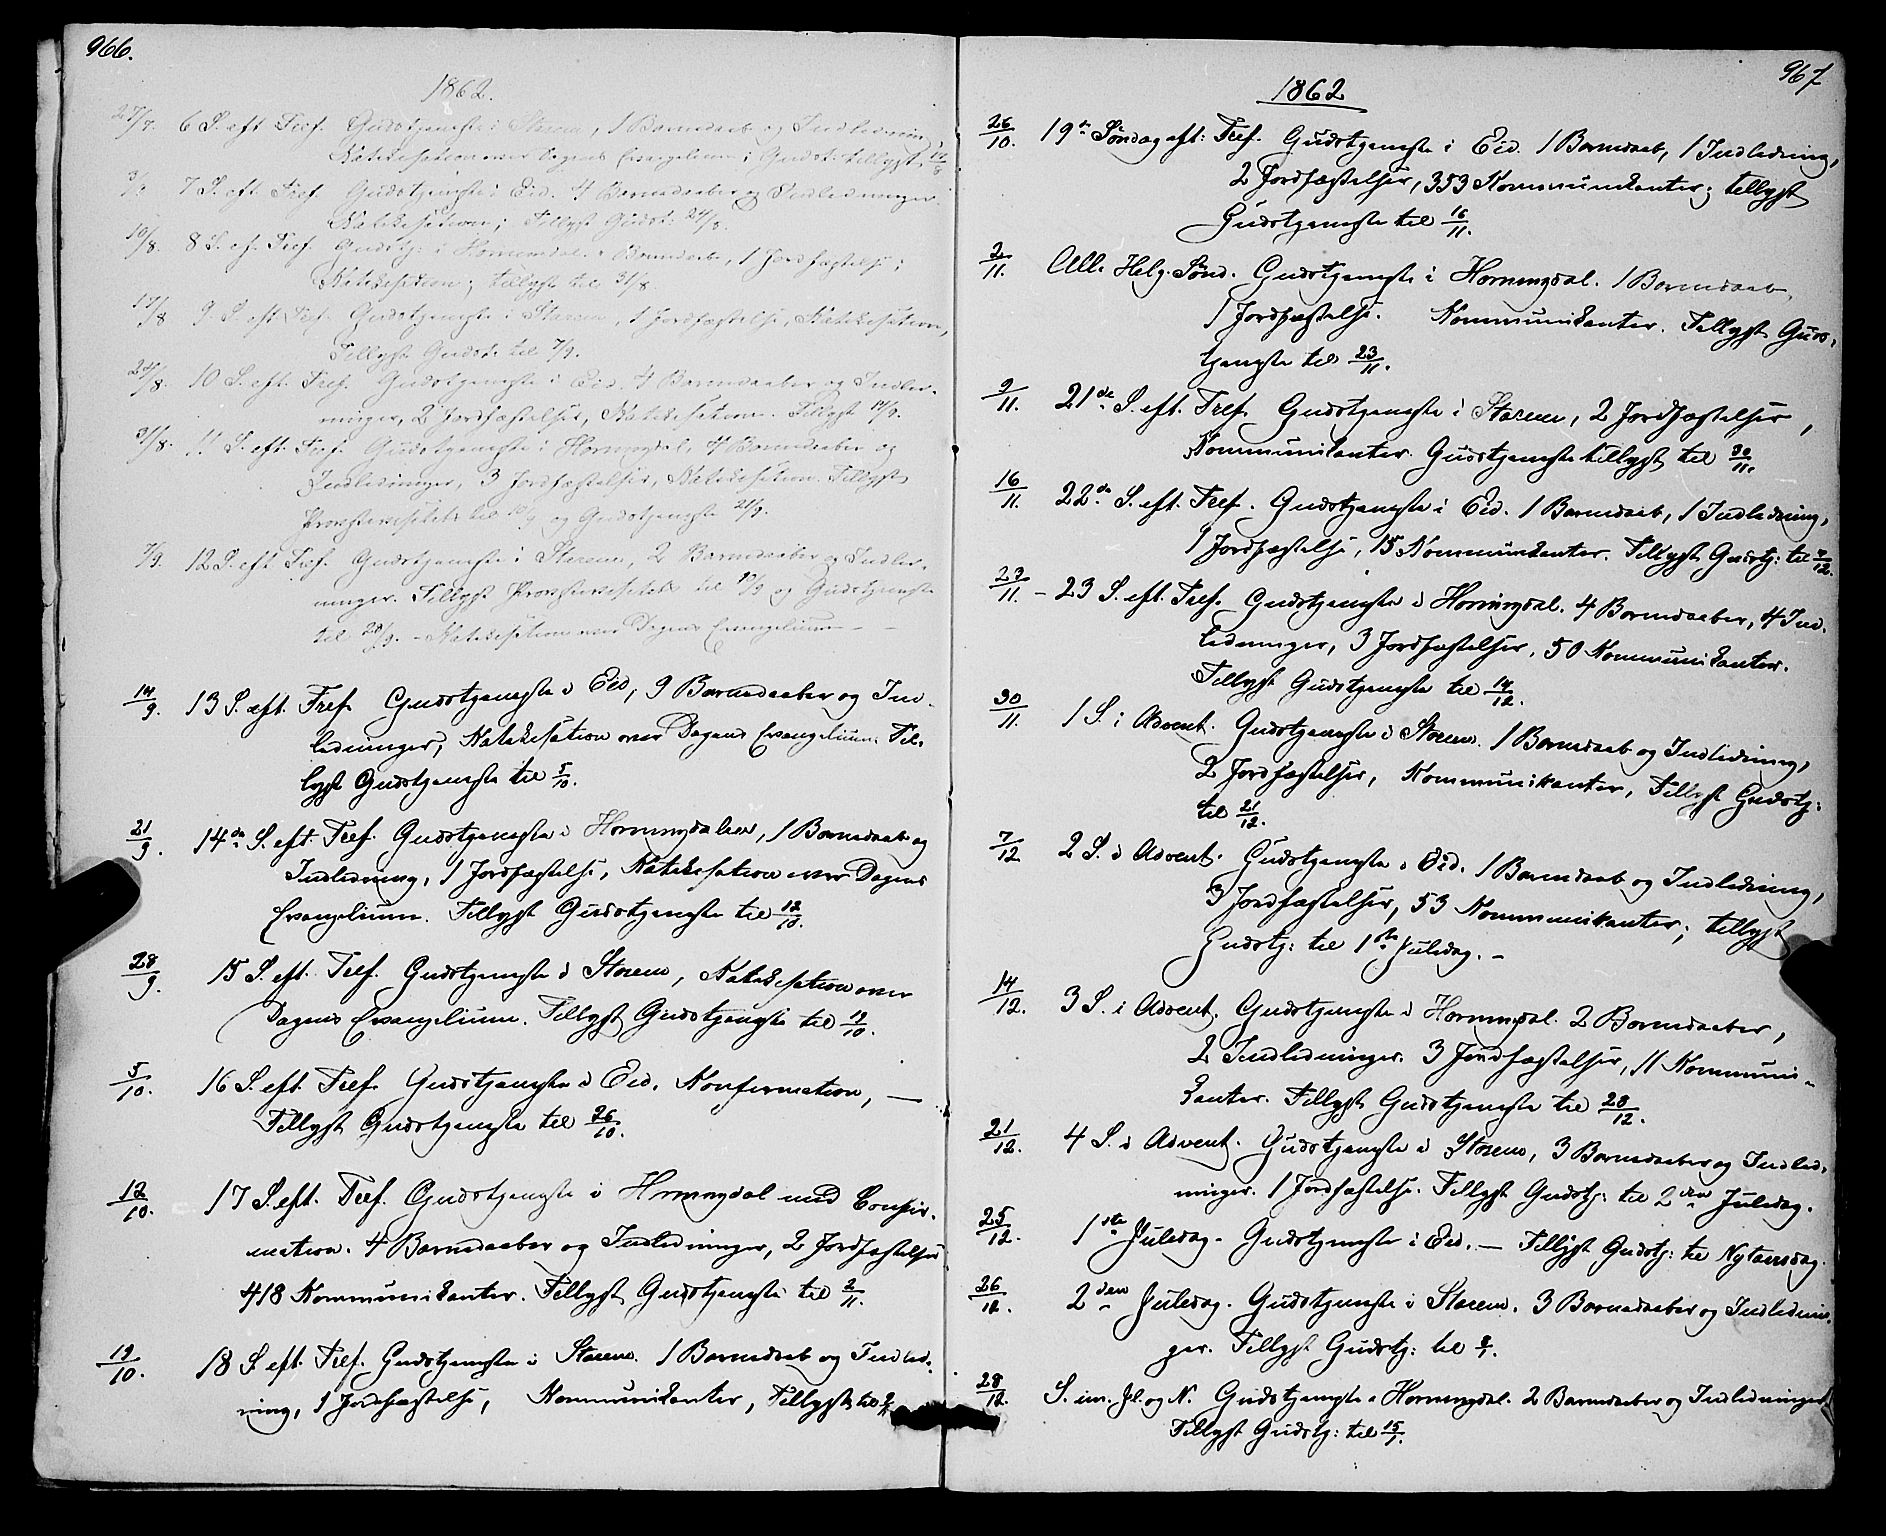 966.
1862.
27/7. 6 S. eft Tref. Gudstjeneste i Starem, 1 Barnedaab og Indledning,
Katekisation over Dagens Evangelium; Gudst: tillyst 17/8
3/8 7 S. eft Tref. Gudstjeneste i Eid. 4 Barnedaaber og Indledninger.
Katekisation; Tillyst Gudst. 24/8.
10/8. 8 S. ef. Tref. Gudstj: i Hornindal. Barndaab, 1 Jordfæstelse;
Katekisation; tillyst til 31/8
17/8 9 S. eft Tref. Gudstjeneste i Starem, 1 Jordfæstelse, Katekisation,
Tillyst Gudst. til 7/9.
24/8. 10 S. eft. Tref. Gudstjeneste i Eid. 4 Barndaaber og Indled-
ninger, 2 Jordfæstelser, Katekisation. Tillyst 14/9.
31/8. 11 S. eft. Tref. Gudstjeneste i Horningdal. 4 Barnedaaber og
Indledninger, 3 Jordfæstelser, Katekisation. Tillyst
Provstevisitats til og Gudstjeneste 21/9.
7/9. 12 S. eft Tref. Gudstjeneste i Starem, 2 Barndaaber og Indled-
ninger. Tillyst Provstevisitats til og Gudstjeneste
til 28/9. - Katekisation over Dagens Evangelium -
14/9. 13 S. eft. Tref. Gudstjeneste i Eid, 9 Barnedaaber og Ind-
ledninger, Katekisation over Dagens Evangelium. Til-
lyst Gudstjeneste til 5/10.
21/9. 14de S. eft. Tref. Gudstjeneste i Horningdalen, 1 Barndaab og
Indledning, 1 Jordfæstelse, Katekisation over Dagens
Evangelium. Tillyst Gudstjeneste til 12/10.
28/9. 15 S. eft. Tref. Gudstjeneste i Starem, Katekisation over
Dagens Evangelium. Tillyst Gudstjeneste til 19/10.
5/10. 16 S. eft. Tref. Gudstjeneste i Eid. Konfirmation, —
Tillyst Gudstjeneste til 26/10.
12/10. 17 S. eft. Tref. Gudstjeneste i Horningdal med Confir-
mation. 4 Barndaaber og Indledninger, 2 Jordfæstelser
418 Kommunikanter. Tillyst Gudstjeneste til 2/11.
19/10. 18 S. eft. Tref. Gudstjeneste i Starem. 1 Barndaab og Indled-
ning, 1 Jordfæstelse, Kommunikanter, Tillyst til
967
1862
26/10. 19de Søndag eft: Tref. Gudstjeneste i Eid. 1 Barndaab, 1 Indledning,
2 Jordfæstelser, 353 Kommunikanter; tillyst
Gudstjeneste til 16/11.
2/11. Alle Helg. Sønd. Gudstjeneste i Horningdal. 1 Barndaab,
1 Jordfæstelse. Kommunikanter. Tillyst Guds-
tjeneste til 23/11.
9/11. 21de S. eft. Tref. Gudstjeneste i Starem, 2 Jordfæstelser,
Kommunikanter. Gudstjeneste tillyst til 30/11.
16/11. 22de S. eft. Tref. Gudstjeneste i Eid. 1 Barndaab, 1 Indledning,
1 Jordfæstelse, 15 Kommunikanter. Tillyst Gudstj: til 7/12.
23/11. - 23 S. eft. Tref. Gudstjeneste i Horningdal. 4 Barndaaber, 4 Ind-
ledninger, 3 Jordfæstelser, 50 Kommunikanter.
Tillyst Gudstjeneste til 14/12.
30/11 1 S. i Advent. Gudstjeneste i Starem. 1 Barndaab og Indledning,
2 Jordfæstelser, Kommunikanter, Tillyst Gudstj:
til 21/12.
7/12 2 S. i Advent. Gudstjeneste i Eid. 1 Barndaab og Indledning,
3 Jordfæstelser, 53 Kommunikanter; tillyst
Gudstj: til 1ste Juledag. -
14/12. 3 S. i Advent. Gudstjeneste i Horningdal. 2 Barndaaber,
2 Indledninger. 3 Jordfæstelser, 11 Kommuni-
kanter. Tillyst Gudstjeneste til 28/12.
21/12. 4 S. i Advent. Gudstjeneste i Starem, 3 Barndaaber og Indled-
ninger. 1 Jordfæstelse. Tillyst Gudstj: til 2den Juledag.
25/12. 1ste Juledag. Gudstjeneste i Eid. — Tillyst Gudstj: til Nytaarsdag.
26/12. 2den Juledag. Gudstjeneste i Starem. 3 Barndaaber og Indlednin-
ger. Tillyst Gudstj: til
28/12. S. im. Jl. og N. Gudstjeneste i Horningdal. 2 Barndaaber og Indledninger.
Tillyst Gudstj: til